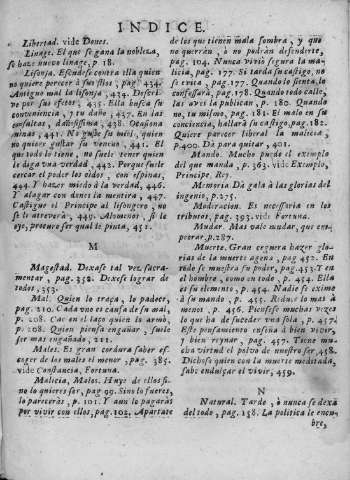 INDICE.
Libertad. vide Dones.
Linage. El que se gana la nobleza,
se haze nuevo linage, p 18.
Lisonja. Escudese contra ella quien
no quiere perecer à sus filos, pag. 434.
Antiguo mal la lisonja, 439.
por sus efetos, 435. Ella busca su
conveniencia, y tu daño, 437. En las
consultas, 438.
minas, 441. No guste su miel, quien
no quiere gustar su veneno, 441. El
que todo lo tiene, no suele tener quien
le diga una verdad, 443. Porque suele
cercar el poder los oidos, con espinas,
444. Y hazer miedo à la verdad, 446.
Y alagar con dones la mentira, 447.
Castigue el Principe al lisongero, no
se le atreverà, 449. Alomenos, si le
oye, procure ser qual le pinta, 451.
M
Magestad. Dexase tal vez sacra-
mentar, pag. 352. Dexese lograr de
todos, 353.
Mal. Quien lo traça, lo padece,
pag. 210. Cada uno es causa de su mal,
p. 208. Cae en el lazo quien lo armò,
p. 208. Quien piensa engañar, suele
ser mas engañado, 211.
Males. Es gran cordura saber es-
coger de los males el menor, pag. 385.
vide Constancia, Fortuna.
Malicia, Malos. Huye de ellos si
no lo quieres ser, pag 99. Sino lo fueres,
lo pareceràs, p. 101. Y aun lo pagaràs
por vivir con ellos, pag. 102. Apartate
de los que tienen mala sombra, y que
no querràn, ò no podràn defenderte,
pag. 104. Nunca viviò segura la ma-
licia, pag. 177. Si tarda su castigo, no
se evita, pag. 177. Quando lo sienta, lo
confessarà, pag. 178. Quando todo calle,
las aves la publican, p. 180. Quando
no, tu mismo, pag. 181. El malo en su
conciencia, hallarà su castigo, pag. 182.
Quiere parecer liberal la malicia,
p.400. Dà para quitar, 401.
Mando. Mucho puede el exemplo
del que manda, p. 363. vide Exemplo,
Principe, Rey.
Memoria Dà gala à las glorias del
ingenio, p. 275.
Moderacion. Es necessaria en los
tributos, pag. 393. vide Fortuna.
Mudar. Mas vale mudar, que em-
peorar, p. 287.
Muerte. Gran ceguera hazer glo-
rias de la muerte agena, pag 452. En
todo se muestra su poder, pag. 453. Y en
el hombre, como en todo, p. 454. Ella
es su elemento, p. 454. Nadie se exime
à su mando, p. 455. Reduzelo mas à
menos, p. 456. Piensese muchas vezes
lo que ha de suceder una sola, p. 457.
Este pensamiento enseña à bien vivir,
y bien reynar, pag. 457. Tiene mu-
cha virtud el polvo de nuestro ser, 458.
Dichoso quien con la muerte meditada,
sabe endulçar el vivir, 459.
N
Natural. Tarde, ò nunca se dexa
del todo, pag. 158. La politica le encu-
bre,